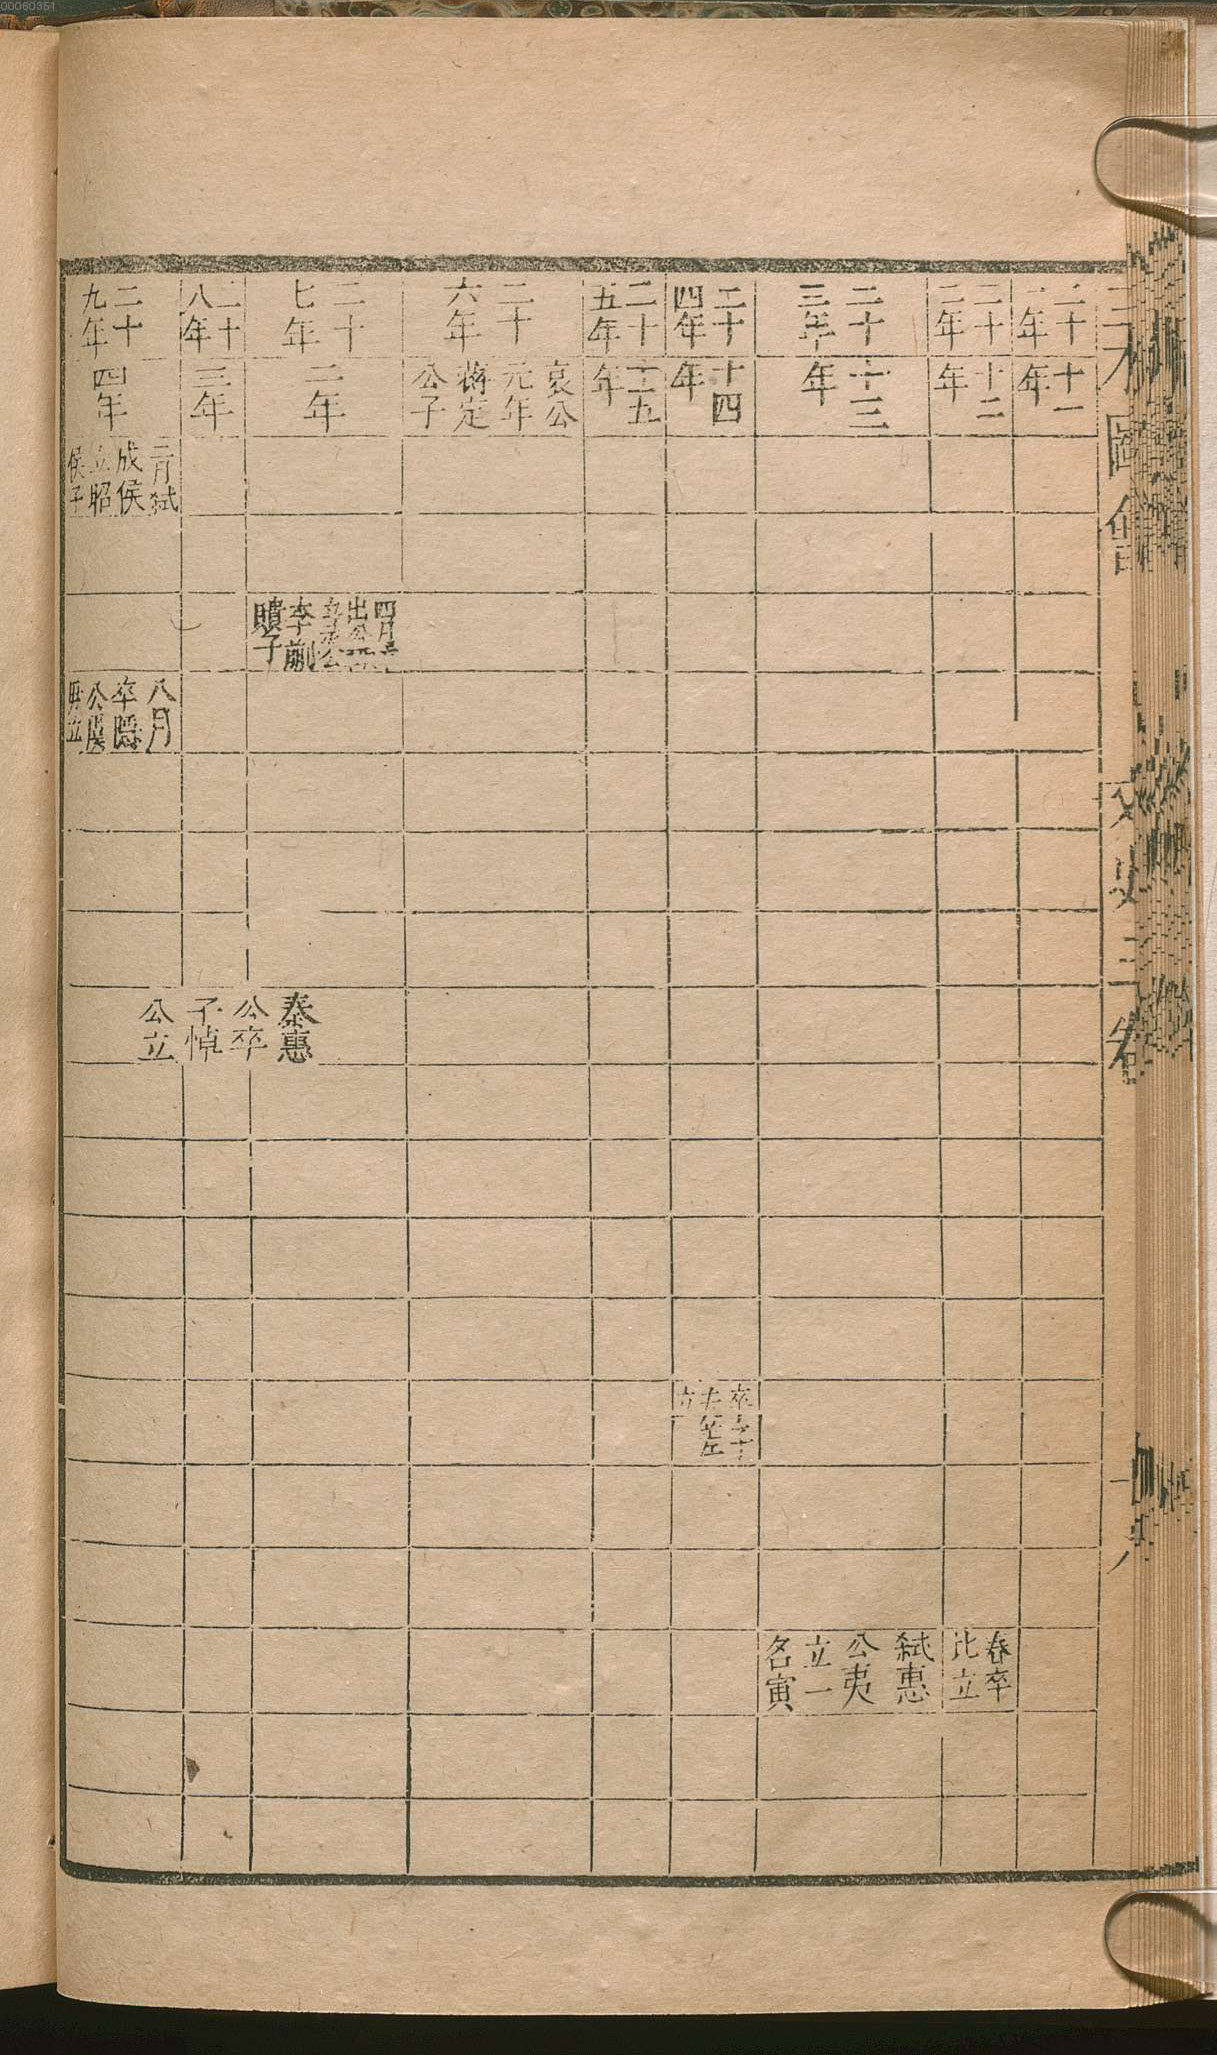 00060351
三才圖會
文史三卷
十八
二十
一年
十一
年
二十
二年
十二
年
春卒
比立
二十
三年
十三
年
弑惠
公夷
立一
名寅
二十
四年
十四
年
二十
五年
十五
年
二十
六年
哀公
元年
蔣定
公子
二十
七年
二年
四月
瞶子
秦惠
公卒
子悼
公立
二十
八年
三年
二十
九年
四年
二月弑
成侯
立昭
侯子
八月
卒隱